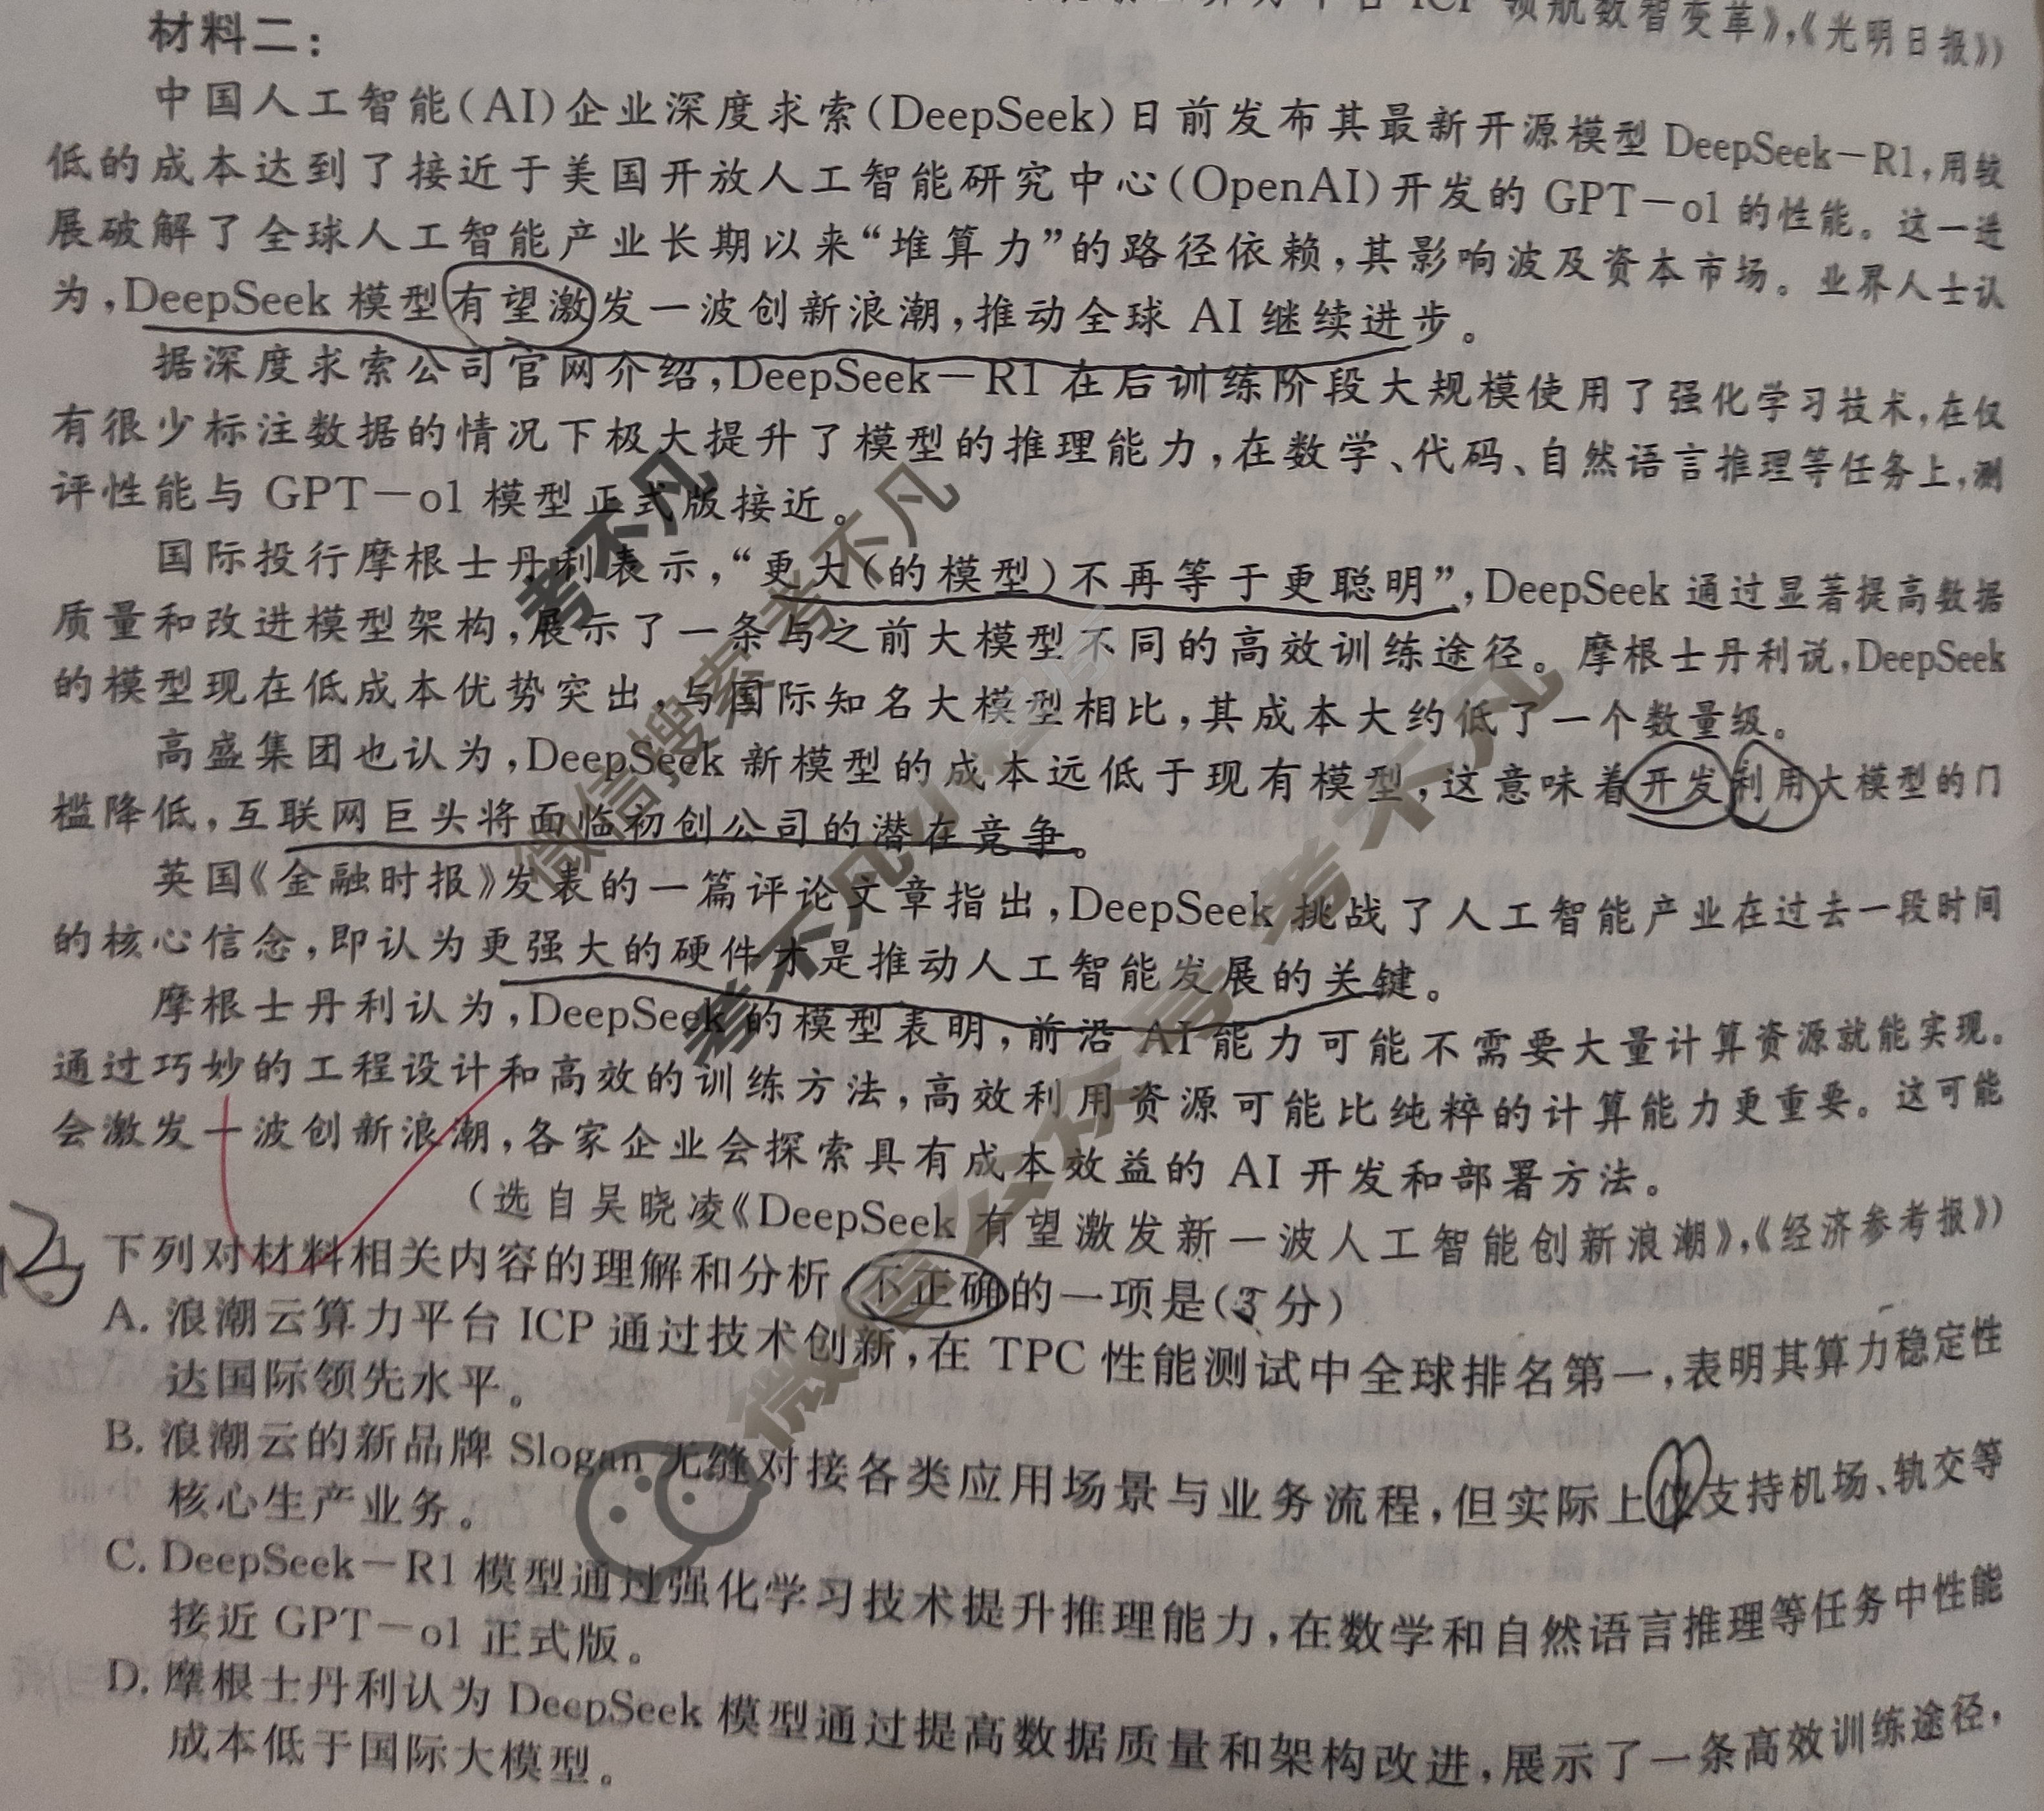 领航数智变革》,《光明日报》)
材料二：
中国人工智能(AI)企业深度求索(DeepSeek)日前发布其最新开源模型 DeepSeek-R1,用较
低的成本达到了接近于美国开放人工智能研究中心(OpenAI)开发的 GPT-o1 的性能。这一进
展破解了全球人工智能产业长期以来“堆算力”的路径依赖,其影响波及资本市场。业界人士认
为,DeepSeek 模型有望激发一波创新浪潮,推动全球 AI 继续进步。
据深度求索公司官网介绍,DeepSeek-R1 在后训练阶段大规模使用了强化学习技术,在仅
有很少标注数据的情况下极大提升了模型的推理能力,在数学、代码、自然语言推理等任务上,测
评性能与 GPT-o1 模型正式版接近。
国际投行摩根士丹利表示,“更大(的模型)不再等于更聪明”,DeepSeek 通过显著提高数据
质量和改进模型架构,展示了一条与之前大模型不同的高效训练途径。摩根士丹利说,DeepSeek
的模型现在低成本优势突出,与国际知名大模型相比,其成本大约低了一个数量级。
高盛集团也认为,DeepSeek 新模型的成本远低于现有模型,这意味着开发利用大模型的门
槛降低,互联网巨头将面临初创公司的潜在竞争。
英国《金融时报》发表的一篇评论文章指出,DeepSeek 挑战了人工智能产业在过去一段时间
的核心信念,即认为更强大的硬件才是推动人工智能发展的关键。
摩根士丹利认为,DeepSeek 的模型表明,前沿 AI 能力可能不需要大量计算资源就能实现。
通过巧妙的工程设计和高效的训练方法,高效利用资源可能比纯粹的计算能力更重要。这可能
会激发一波创新浪潮,各家企业会探索具有成本效益的 AI 开发和部署方法。
(选自吴晓凌《DeepSeek 有望激发新一波人工智能创新浪潮》,《经济参考报》)
1. 下列对材料相关内容的理解和分析,不正确的一项是(3分)
A. 浪潮云算力平台 ICP 通过技术创新,在 TPC 性能测试中全球排名第一,表明其算力稳定性
达国际领先水平。
B. 浪潮云的新品牌 Slogan 无缝对接各类应用场景与业务流程,但实际上仅支持机场、轨交等
核心生产业务。
C. DeepSeek-R1 模型通过强化学习技术提升推理能力,在数学和自然语言推理等任务中性能
接近 GPT-o1 正式版。
D. 摩根士丹利认为 DeepSeek 模型通过提高数据质量和架构改进,展示了一条高效训练途径,
成本低于国际大模型。
考不凡
微信搜索 考不凡
微信公众号 考不凡